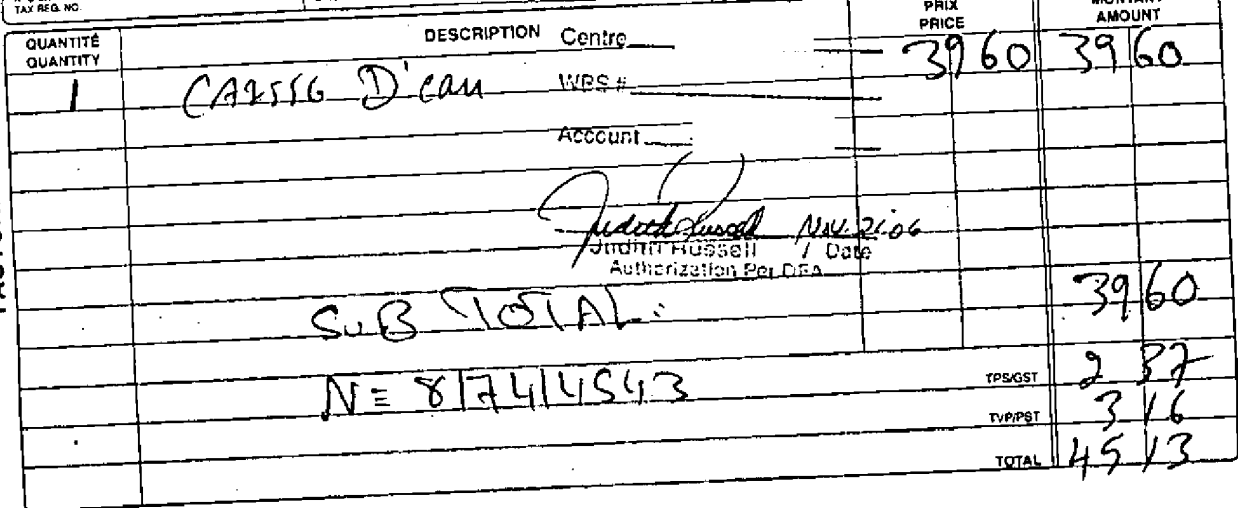 TAX REG. NO.
QUANTITÉ
QUANTITY
DESCRIPTION
PRIX
PRICE
MONTANT
AMOUNT
Centre
1 CAISSG D'eau 39 60 39 60
WBS #
Account
Judith Russell Nov. 21.06
Judith Russell / Date
Authorization Per DFA
SUB TOTAL: 39 60
N= 87414543
TPS/GST 2 37
TVP/PST 3 16
TOTAL 45 13